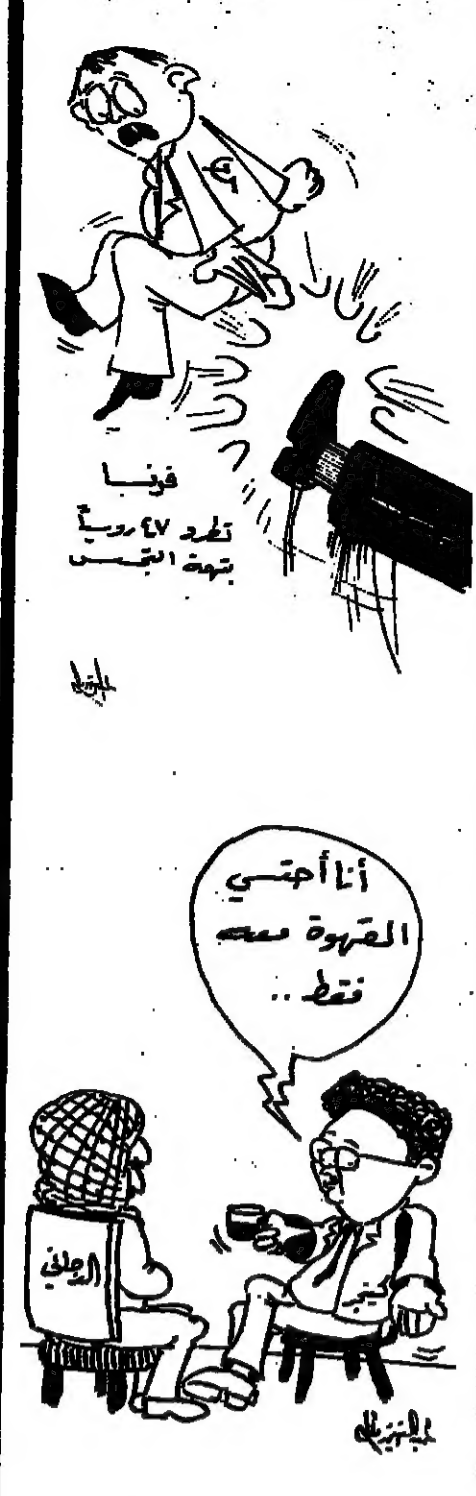 فرنسا
تطرد ٤٧ روسياً
بتهمة التجسس
أنا أحتسي
القهوة معه
فقط ..